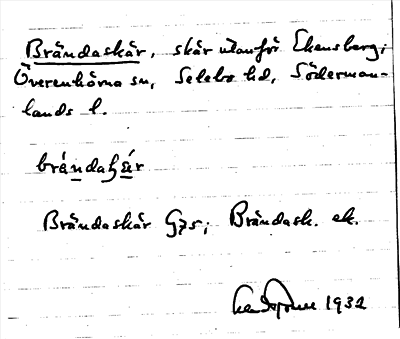 Brändaskär, skär utanför Ekensberg,
Överenhörna sn, Selebo hd, Söderman-
lands l.
brándaʃä́r
Brändaskär G75; Brändask. ek.
1932